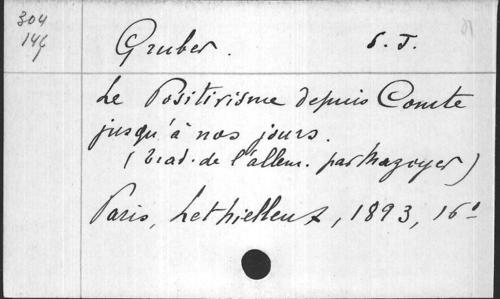 304
146
Gruber. S. J.
Le Positivisme depuis Comte
jusqu'à nos jours.
(trad. de l'allem. par Mazoyer)
Paris, Lethielleux, 1893, 16º